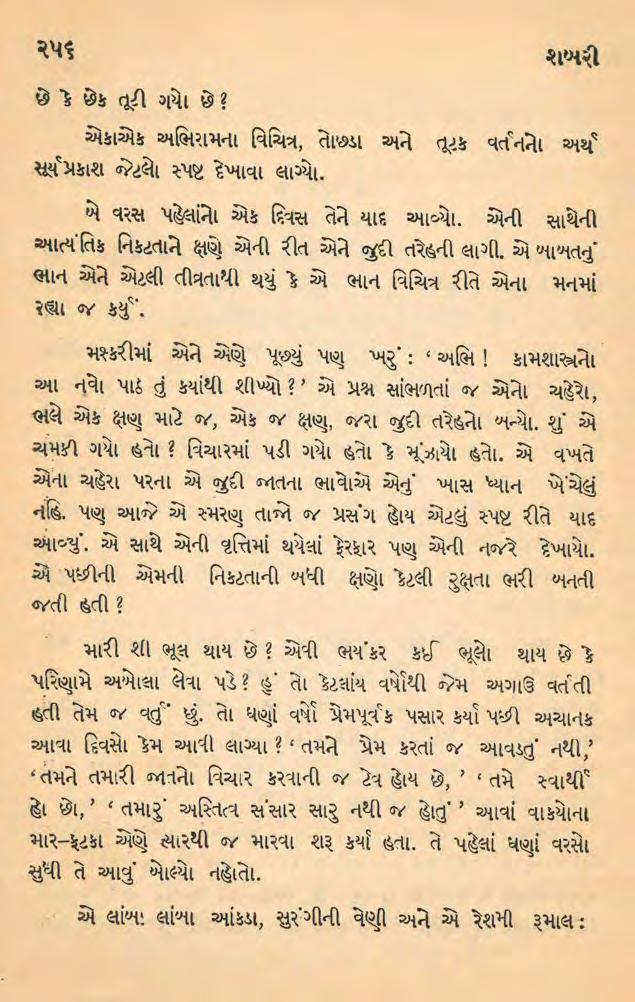 ૨૫૬ શબરી
છે કે છેક તૂટી ગયો છે?
એકાએક અભિરામના વિચિત્ર, તોછડા અને તૂટક વર્તનનો અર્થ
સૂર્યપ્રકાશ જેટલો સ્પષ્ટ દેખાવા લાગ્યો.
બે વરસ પહેલાંનો એક દિવસ તેને યાદ આવ્યો. એની સાથેની
આત્યંતિક નિકટતાને ક્ષણે એની રીત એને જુદી તરેહની લાગી. એ બાબતનું
ભાન એને એટલી તીવ્રતાથી થયું કે એ ભાન વિચિત્ર રીતે એના મનમાં
રહ્યા જ કર્યું.
મશ્કરીમાં એને એણે પૂછ્યું પણ ખરું : ‘ અભિ ! કામશાસ્ત્રનો
આ નવો પાઠ તું કયાંથી શીખ્યો ? ’ એ પ્રશ્ન સાંભળતાં જ એનો ચહેરો,
ભલે એક ક્ષણ માટે જ, એક જ ક્ષણ, જરા જુદી તરેહનો બન્યો. શું એ
ચમકી ગયો હતો ? વિચારમાં પડી ગયો હતો કે મૂંઝાયો હતો. એ વખતે
એના ચહેરા પરના એ જુદી જાતના ભાવોએ એનું ખાસ ધ્યાન ખેંચેલું
નહિ. પણ આજે એ સ્મરણ તાજો જ પ્રસંગ હોય એટલું સ્પષ્ટ રીતે યાદ
આવ્યું. એ સાથે એની વૃત્તિમાં થયેલાં ફેરફાર પણ એની નજરે દેખાયો.
એ પછીની એમની નિકટતાની બધી ક્ષણો કેટલી રુક્ષતા ભરી બનતી
જતી હતી ?
મારી શી ભૂલ થાય છે ? એવી ભયંકર કઈ ભૂલો થાય છે કે
પરિણામે અબોલા લેવા પડે ? હું તો કેટલાંય વર્ષોથી જેમ અગાઉ વર્તતી
હતી તેમ જ વર્તું છું. તો ઘણાં વર્ષો પ્રેમપૂર્વક પસાર કર્યા પછી અચાનક
આવા દિવસો કેમ આવી લાગ્યા ? ‘ તમને પ્રેમ કરતાં જ આવડતું નથી,’
‘તમને તમારી જાતનો વિચાર કરવાની જ ટેવ હોય છે, ’ ‘ તમે સ્વાર્થી
હો છો, ’ ‘ તમારું અસ્તિત્વ સંસાર સારુ નથી જ હોતું ’ આવાં વાકયોના
માર–ફટકા એણે ત્યારથી જ મારવા શરૂ કર્યા હતા. તે પહેલાં ઘણાં વરસો
સુધી તે આવું બોલ્યો નહોતો.
એ લાંબા લાંબા આંકડા, સુરંગીની વેણી અને એ રેશમી રૂમાલ :